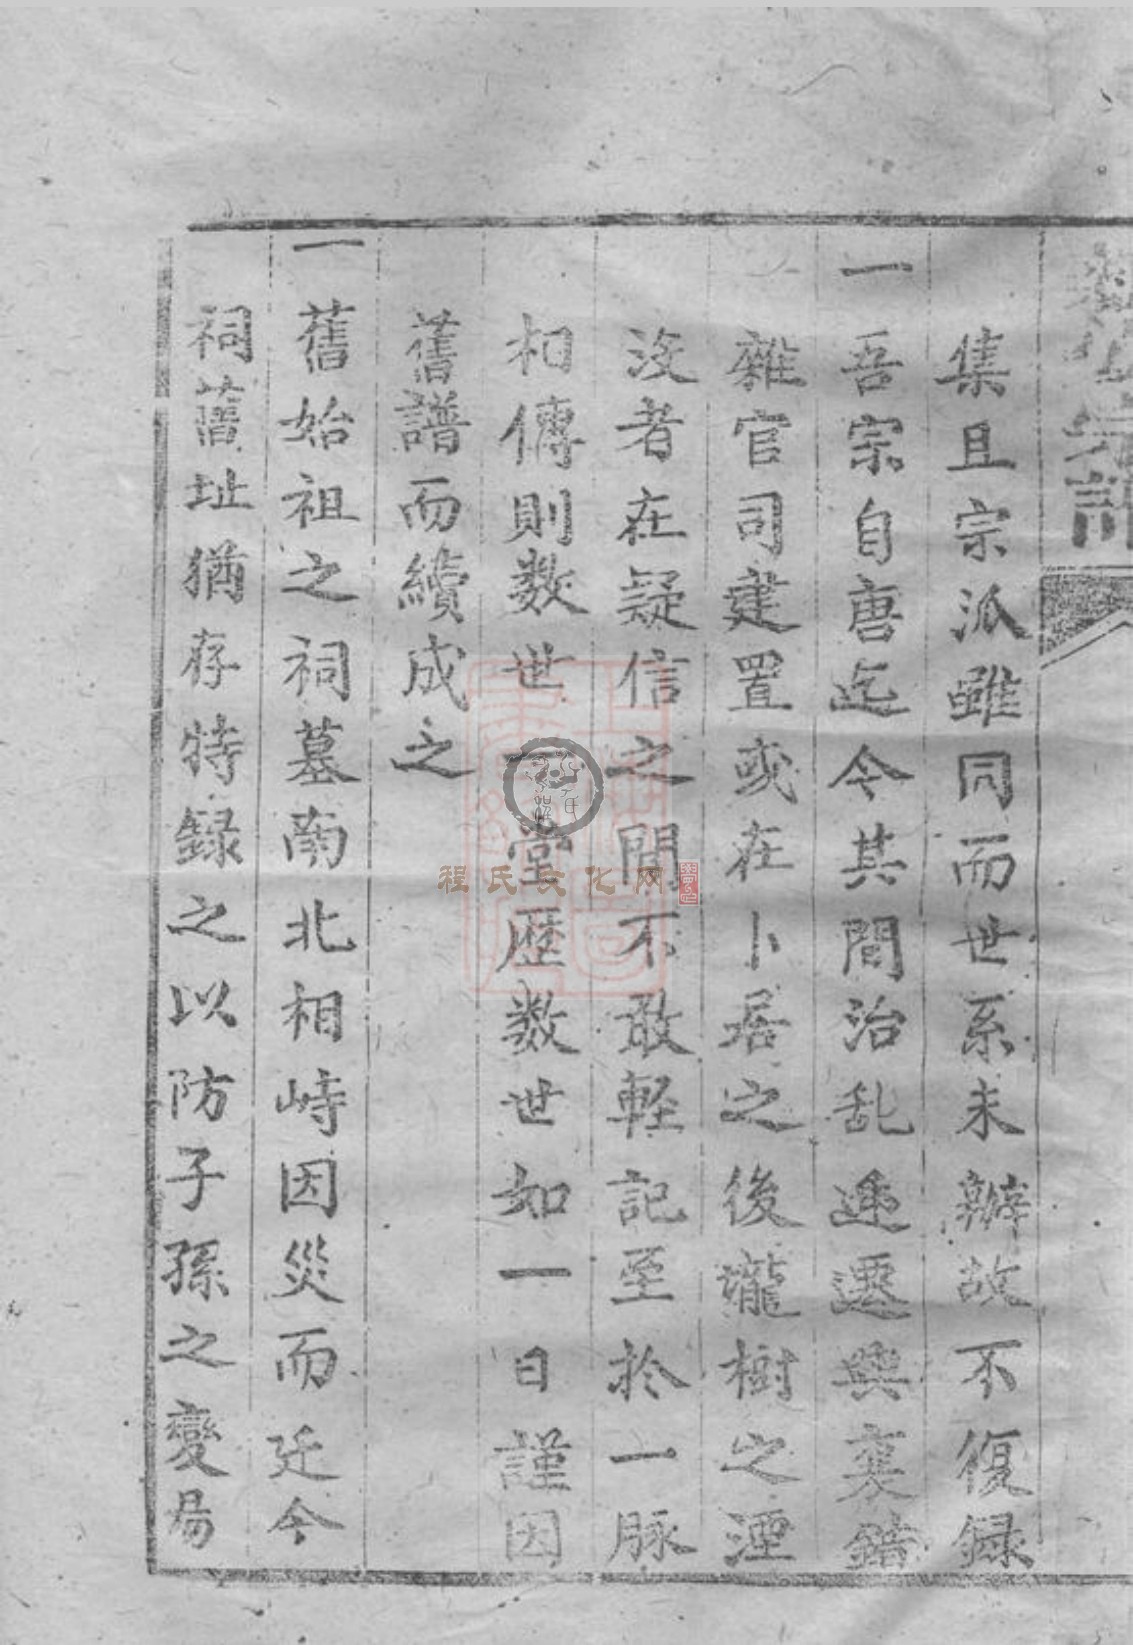 程氏宗譜
集且宗派雖同而世系未辦故不復録
一吾宗自唐迄今其間治乱逓遷興衰錯
雜官司建置或在卜居之後瀧樹之湮
没者在疑信之間不敢輕記至於一脉
相傳則数世一堂歴数世如一日謹因
舊譜而續成之
一舊始祖之祠墓南北相峙因災而迁今
祠舊址猶存特録之以防子孫之變易
程氏文化网